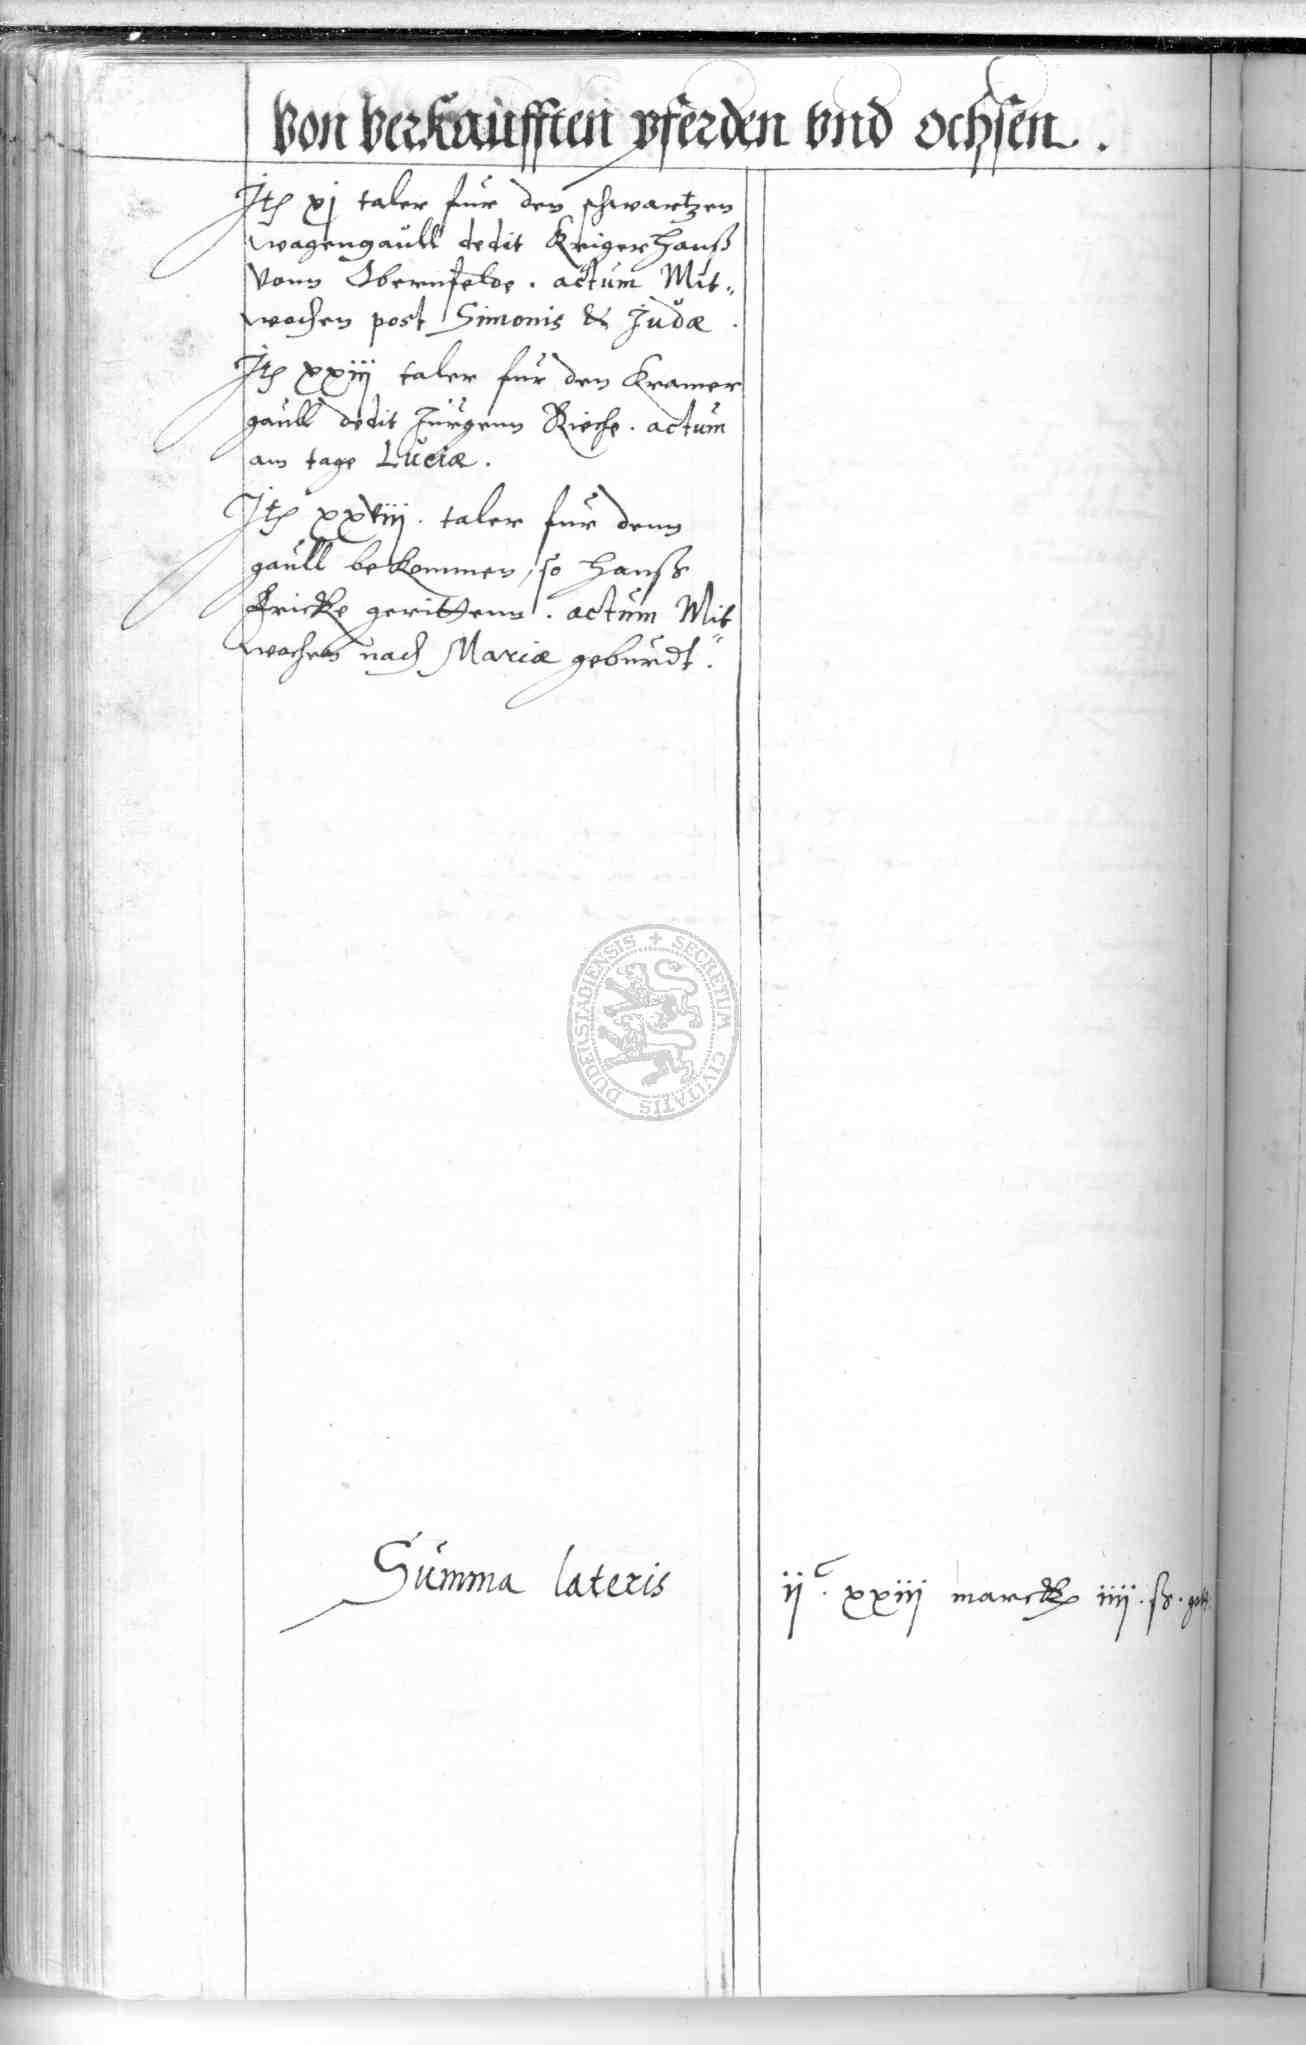 Von verkaufften pferden vnd ochsen.
Itꝫ xj taler fur den schwartzen
wagengaull dedit Kriger Hanß
vonn Obernfelde. actum Mit„
wochen post Simonis & Judæ.
Itꝫ xxiij taler fur den Kramer
gaull dedit Jurgenn Rieche. actum
am tage Luciæ.
Itꝫ xxviij. taler fur denn
gaull bekommen, so Hanß
Fricke gerittenn. actum Mit
wochen nach Mariæ geburdt.
DUDERSTADIENSIS + SECRETUM CIVITATIS
Summa lateris ijᶜ. xxiij marck iiij. ß.